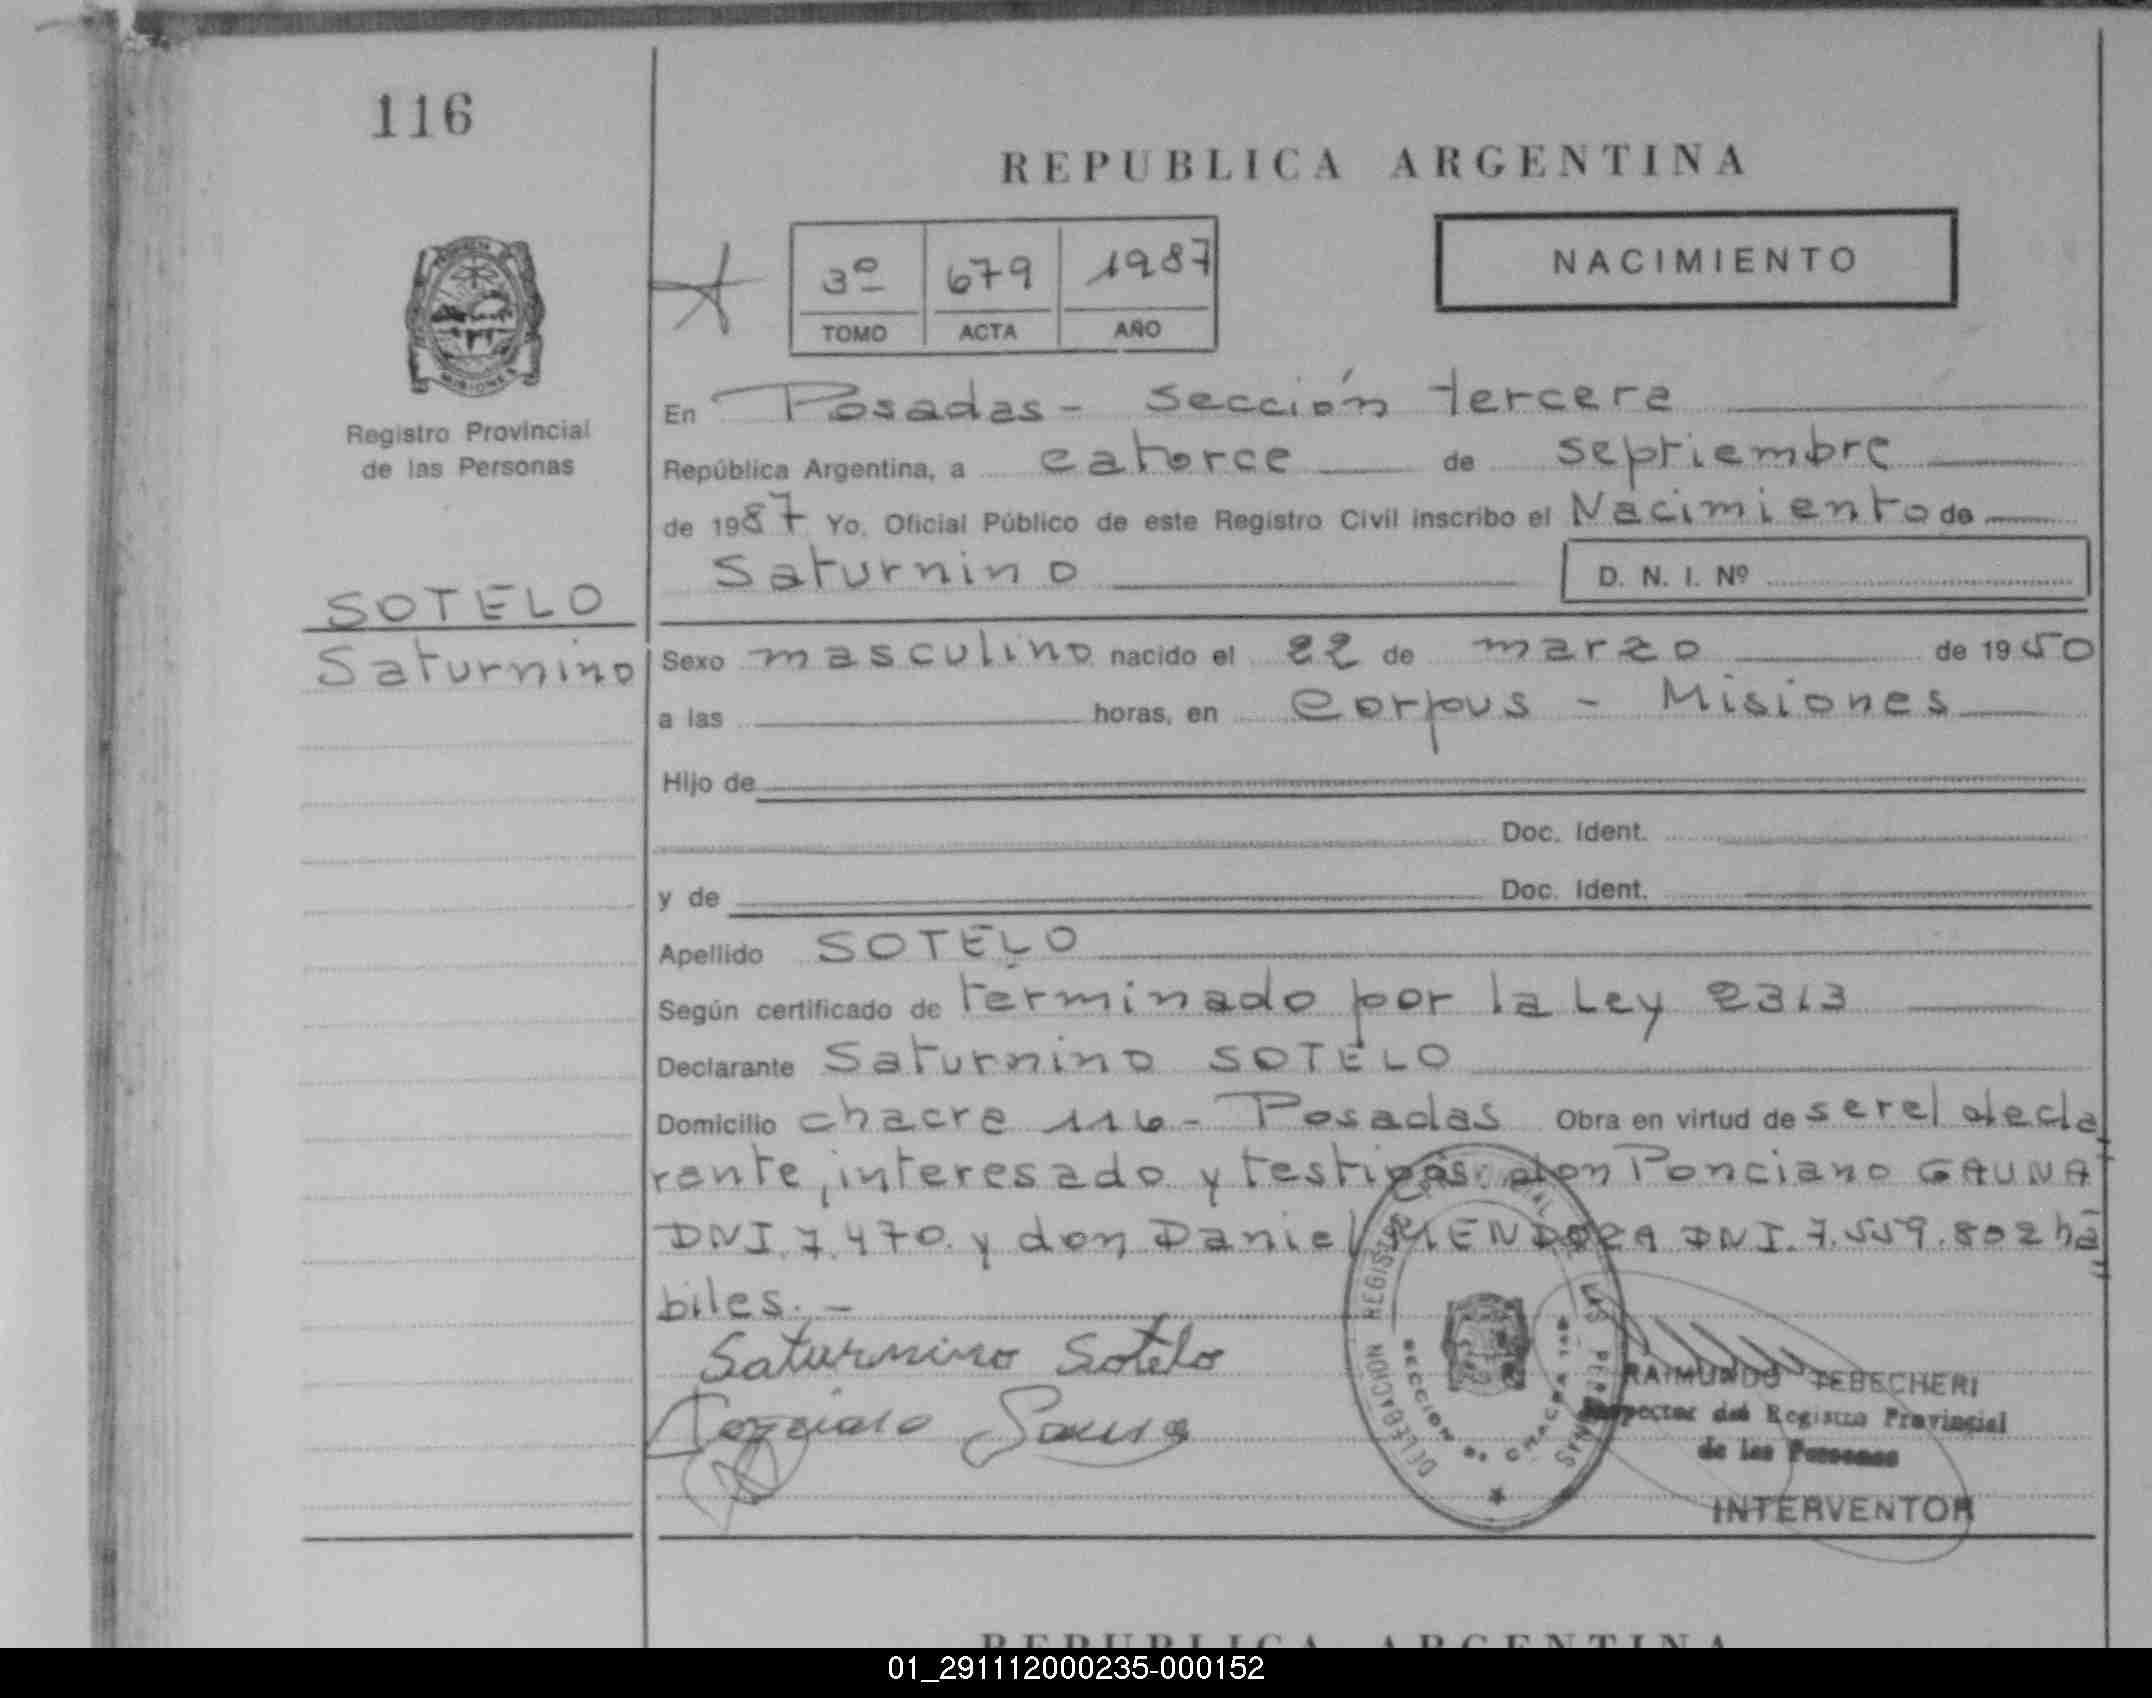 116
REPUBLICA ARGENTINA
NACIMIENTO
3º 679 1987
TOMO ACTA AÑO
MISIONES
Registro Provincial
de las Personas
En Posadas - sección tercera
República Argentina, a catorce de septiembre
de 1987 Yo, Oficial Público de este Registro Civil inscribo el Nacimiento de
Saturnino D. N. I. Nº
SOTELO
Saturnino
Sexo masculino nacido el 22 de marzo de 1950
a las horas, en Corpus - Misiones
Hijo de
Doc. Ident.
y de Doc. Ident.
Apellido SOTELO
Según certificado de terminado por la Ley 2313
Declarante Saturnino SOTELO
Domicilio chacra 116 - Posadas Obra en virtud de ser el decla
rante, interesado y testigos: don Ponciano GAUNA
DNI. 7.470. y don Daniel MENDOZA DNI. 7.559.802 há
biles. -
Saturnino Sotelo
Ponciano Gauna
RAIMUNDO TEBECHERI
Inspector del Registro Provincial
de las Personas
INTERVENTOR
REPUBLICA ARGENTINA
01_291112000235-000152